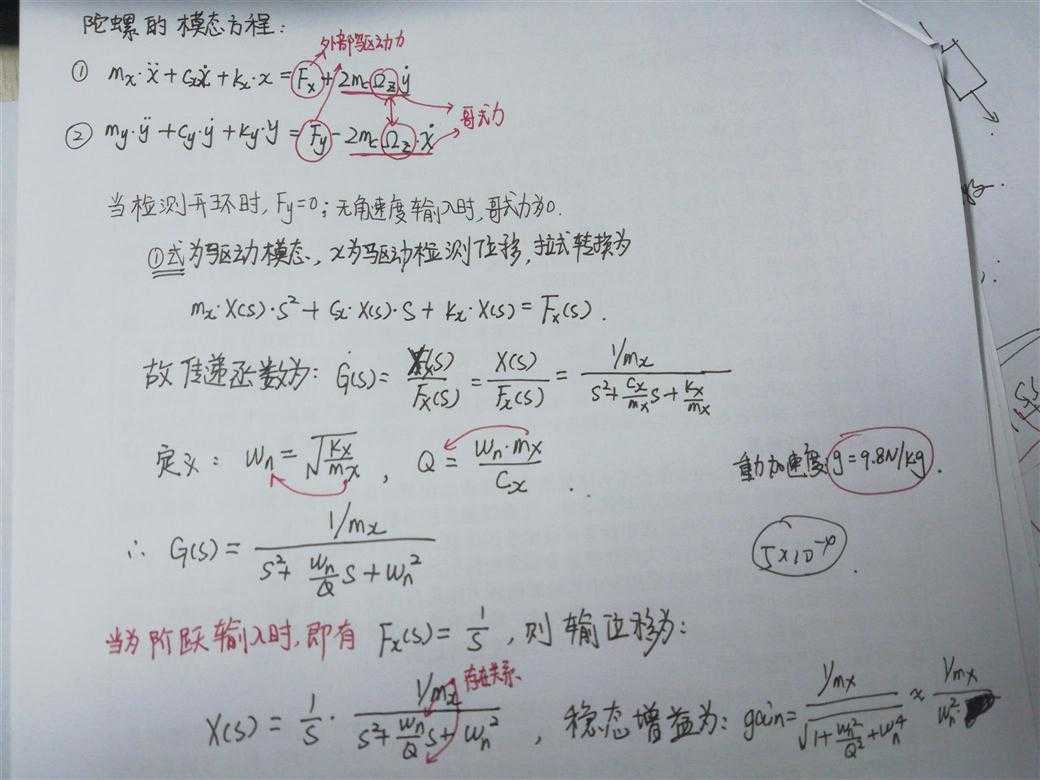 陀螺的模态方程:
外部驱动力
① mx·ẍ+cxẋ+kx·x=Fx+2mcΩzẏ
哥式力
② my·ÿ+cy·ẏ+ky·y=Fy-2mcΩz·ẋ
当检测开环时, Fy=0; 无角速度输入时, 哥式力为0.
①式为驱动模态, x为驱动检测位移, 拉式转换为
mx·X(s)·s²+cx·X(s)·s+kx·X(s)=Fx(s).
故传递函数为: G(s)= X(s)/Fx(s) = X(s)/Fx(s) = (1/mx)/(s²+(cx/mx)s+kx/mx)
定义: wn=√(kx/mx), Q=(wn·mx)/cx
重力加速度 g=9.8N/kg.
∴ G(s)=(1/mx)/(s²+(wn/Q)s+wn²)
当为阶跃输入时, 即有 Fx(s)=1/s, 则输位移为:
存在关系
X(s)=1/s·(1/mx)/(s²+(wn/Q)s+wn²), 稳态增益为: gain=(1/mx)/√(1+wn²/Q²+wn⁴)≈(1/mx)/wn²